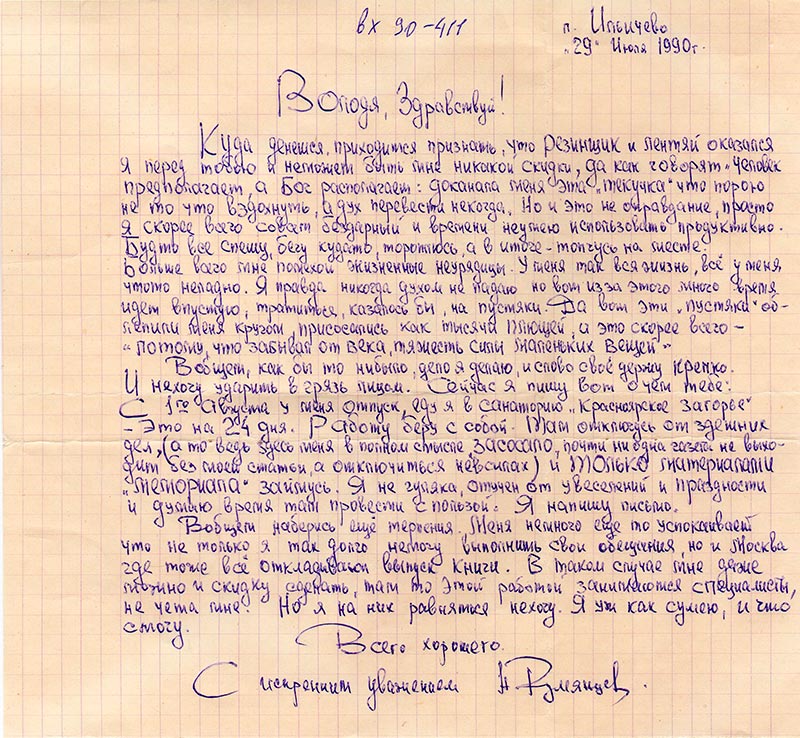 вх 90-411
п. Ильичево
"29" Июля 1990г.
Володя, Здравствуй!
Куда денешся, приходится признать, что Резинщик и лентяй оказался
я перед тобою и неможет быть мне никакой скидки, да как говорят "Человек
предполагает, а Бог располагает: доканала меня эта "текучка" что порою
не то что вздохнуть, а дух перевести некогда. Но и это не оправдание, просто
я скорее всего совсем бездарный и времени неумею использовать продуктивно.
Будть все спешу, бегу кудато, тороплюсь, а в итоге - топчусь на месте.
Больше всего мне помехой жизненные неурядицы. У меня так вся жизнь, всё у меня
чтото неладно. Я правда никогда духом не падаю но вот изза этого много время
идет впустую, тратиться, казалось бы, на пустяки. Да вот эти "пустяки" об-
лепили меня кругом, присосались как тысяча плющей, а это скорее всего -
"потому, что забывал от века, тяжесть силы маленьких вещей"
Вобщем, как бы то нибыло, дело я делаю, и слово своё держу крепко.
И нехочу ударить в грязь лицом. Сейчас я пишу вот о чем тебе:
С 1го Августа у меня отпуск, еду я в санаторию "Красноярское Загорье"
- Это на 24 дня. Работу беру с собой. Там отключусь от здешних
дел, (а то ведь здесь меня в полном смысле засосало, почти ни одна газета не выхо-
дит без моей статьи, а отключиться невсилах) и только материалами
"Мемориала" займусь. Я не гуляка, отучен от увеселений и праздности
и думаю время там провести с пользой. Я напишу письмо.
Вобщем наберись ещё терпения. Меня немного ещё то успокаивает
что не только я так долго немогу выполнить свои обещания, но и Москва
где тоже всё откладывался выпуск Книги. В таком случае мне даже
можно и скидку сделать, там то этой работой занимаются специалисты,
не чета мне. Но я на них равняться нехочу. Я уж как сумею, и что
смогу.
Всего хорошего.
С искренним уважением Н Румянцев.